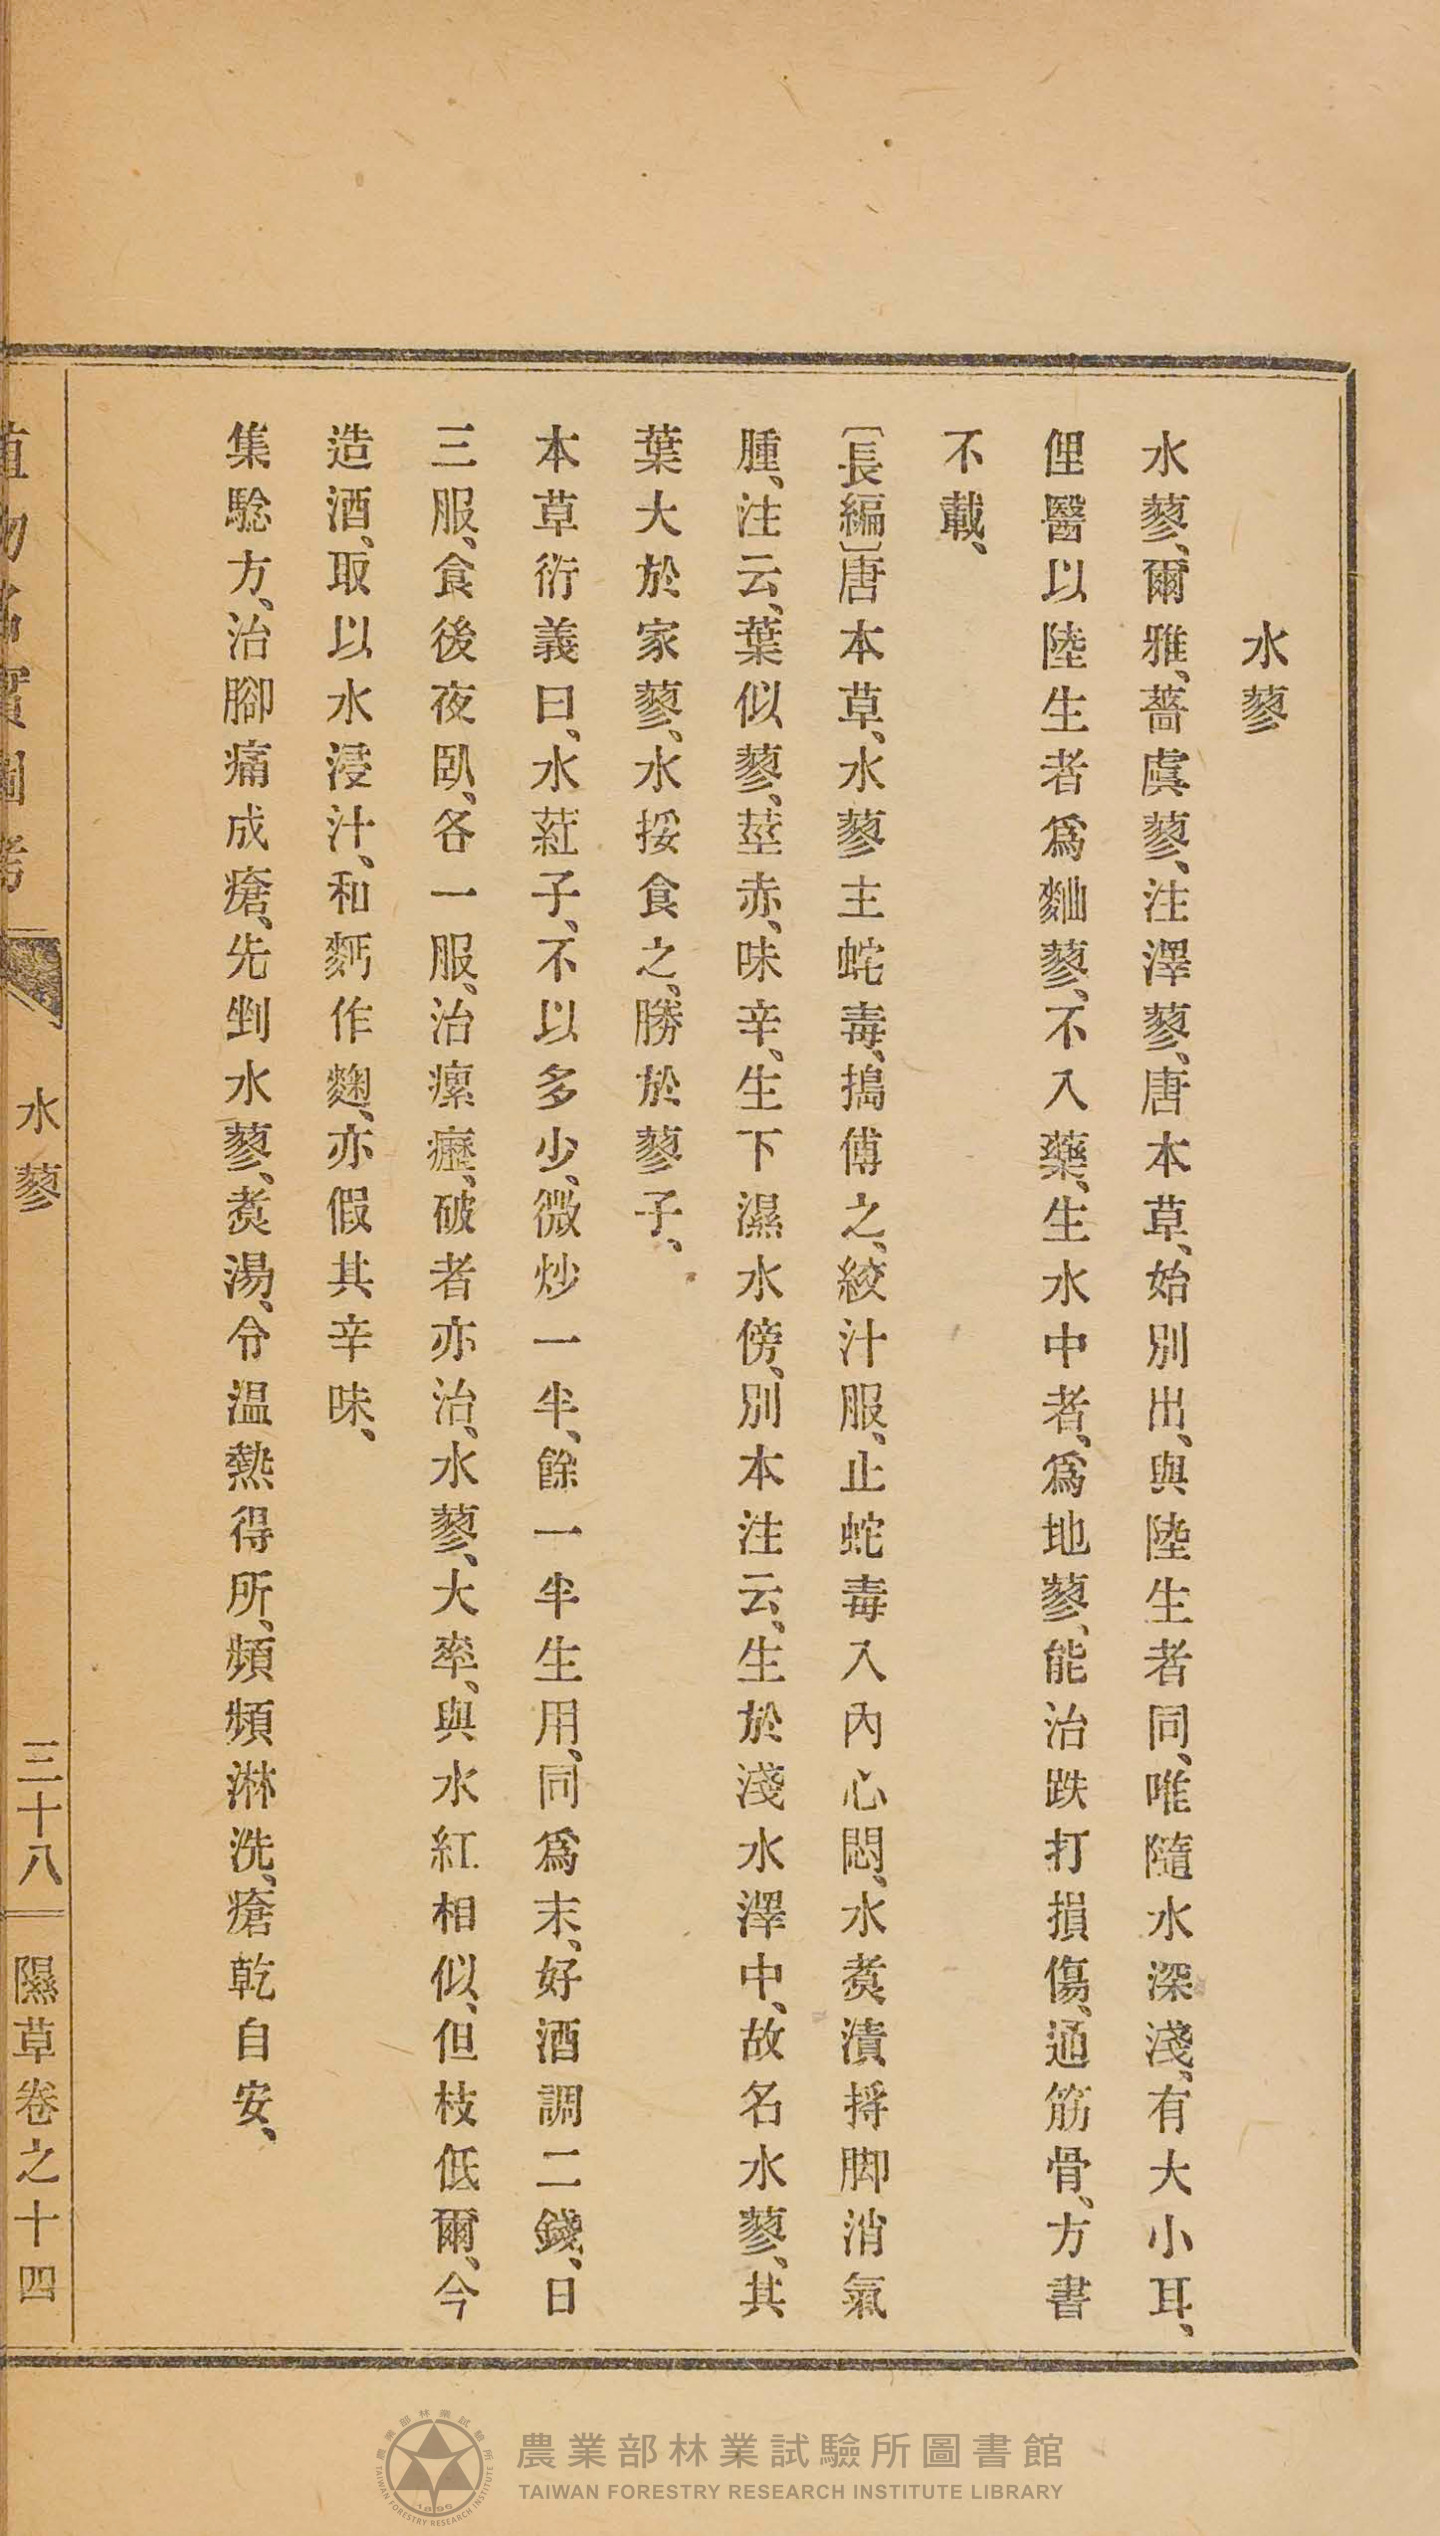 水蓼
水蓼、爾雅、薔虞蓼、注澤蓼、唐本草、始別出、與陸生者同、唯隨水深淺、有大小耳、
俚醫以陸生者爲麯蓼、不入藥、生水中者、爲地蓼、能治跌打損傷、通筋骨、方書
不載、
〔長編〕唐本草、水蓼主蛇毒、搗傅之、絞汁服、止蛇毒入內心悶、水煑漬捋脚消氣
腫、注云、葉似蓼、莖赤、味辛、生下濕水傍、別本注云、生於淺水澤中、故名水蓼、其
葉大於家蓼、水挼食之、勝於蓼子、
本草衍義曰、水葒子、不以多少、微炒一半、餘一半生用、同爲末、好酒調二錢、日
三服、食後夜臥、各一服、治瘰癧、破者亦治、水蓼、大率、與水紅相似、但枝低爾、今
造酒、取以水浸汁、和麪作麴、亦假其辛味、
集驗方、治腳痛成瘡、先剉水蓼、煑湯、令溫熱得所、頻頻淋洗、瘡乾自安、
植物名實圖考
水蓼
三十八
隰草卷之十四
農業部林業試驗所圖書館
TAIWAN FORESTRY RESEARCH INSTITUTE LIBRARY
農業部林業試驗所
TAIWAN FORESTRY RESEARCH INSTITUTE
1896